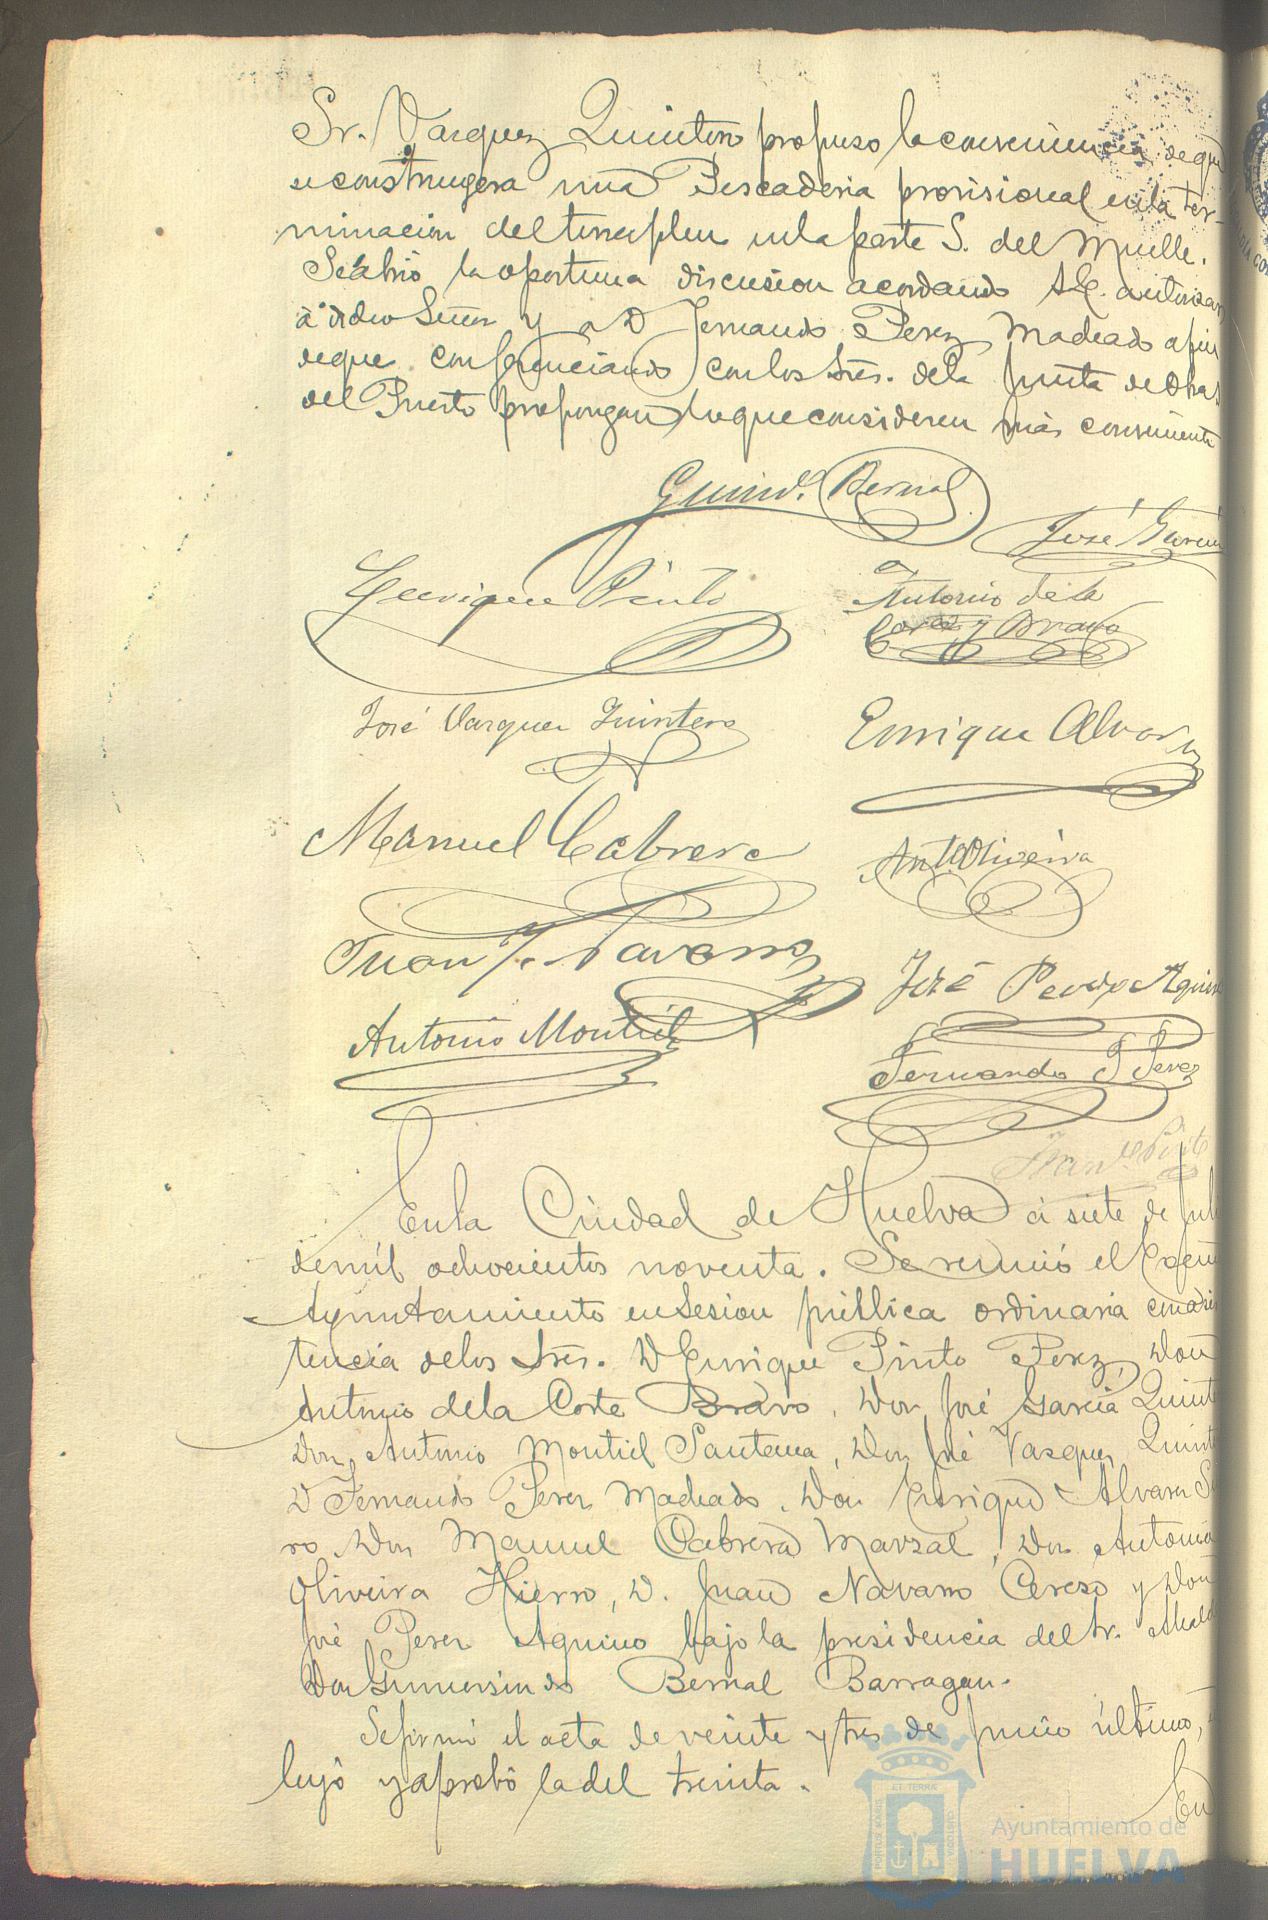 Sr. Vazquez Quintero propuso la conveniencia de que
se construyera una Pescaderia provisional en la ter-
minacion del terraplen en la parte S. del Muelle.
Se abrió la oportuna discusion acordando S.E. autorizar
á dicho Señor y a D Fernando Perez Machado a fin
de que conferenciando con los Sres. de la Junta de Obras
del Puerto propongan lo que consideren más conveniente
Gumdo. Bernal
José García
Enrique Pinto
Antonio de la
Corte y Bravo
José Vazquez Quintero
Enrique Alvarez
Manuel Cabrera
Ant. Oliveira
Juan Navarro
José Perez Aquino
Antonio Montiel
Fernando P Perez
En la Ciudad de Huelva á siete de Juli
de mil ochocientos noventa. Se reunió el Excmo
Ayuntamiento en Sesion pública ordinaria con asis
tencia de los Sres. D Enrique Pinto Perez, Don
Antonio de la Corte Bravo, Don José Garcia Quint
Don Antonio Montiel Santana, Don José Vazquez Quint
D Fernando Perez Machado, Don Enrique Alvarez
ro, Don Manuel Cabrera Marzal, Don Antonio
Oliveira Hierro, D. Juan Navarro Cerezo y Don
José Perez Aquino bajo la presidencia del Sr. Alcald
Don Gumersindo Bernal Barragan.
Se firmó el acta de veinte y tres de Junio último,
leyó y aprobó la del treinta.
En
PORTUS MARIS ET TERRAE CUSTODIA
Ayuntamiento de
HUELVA